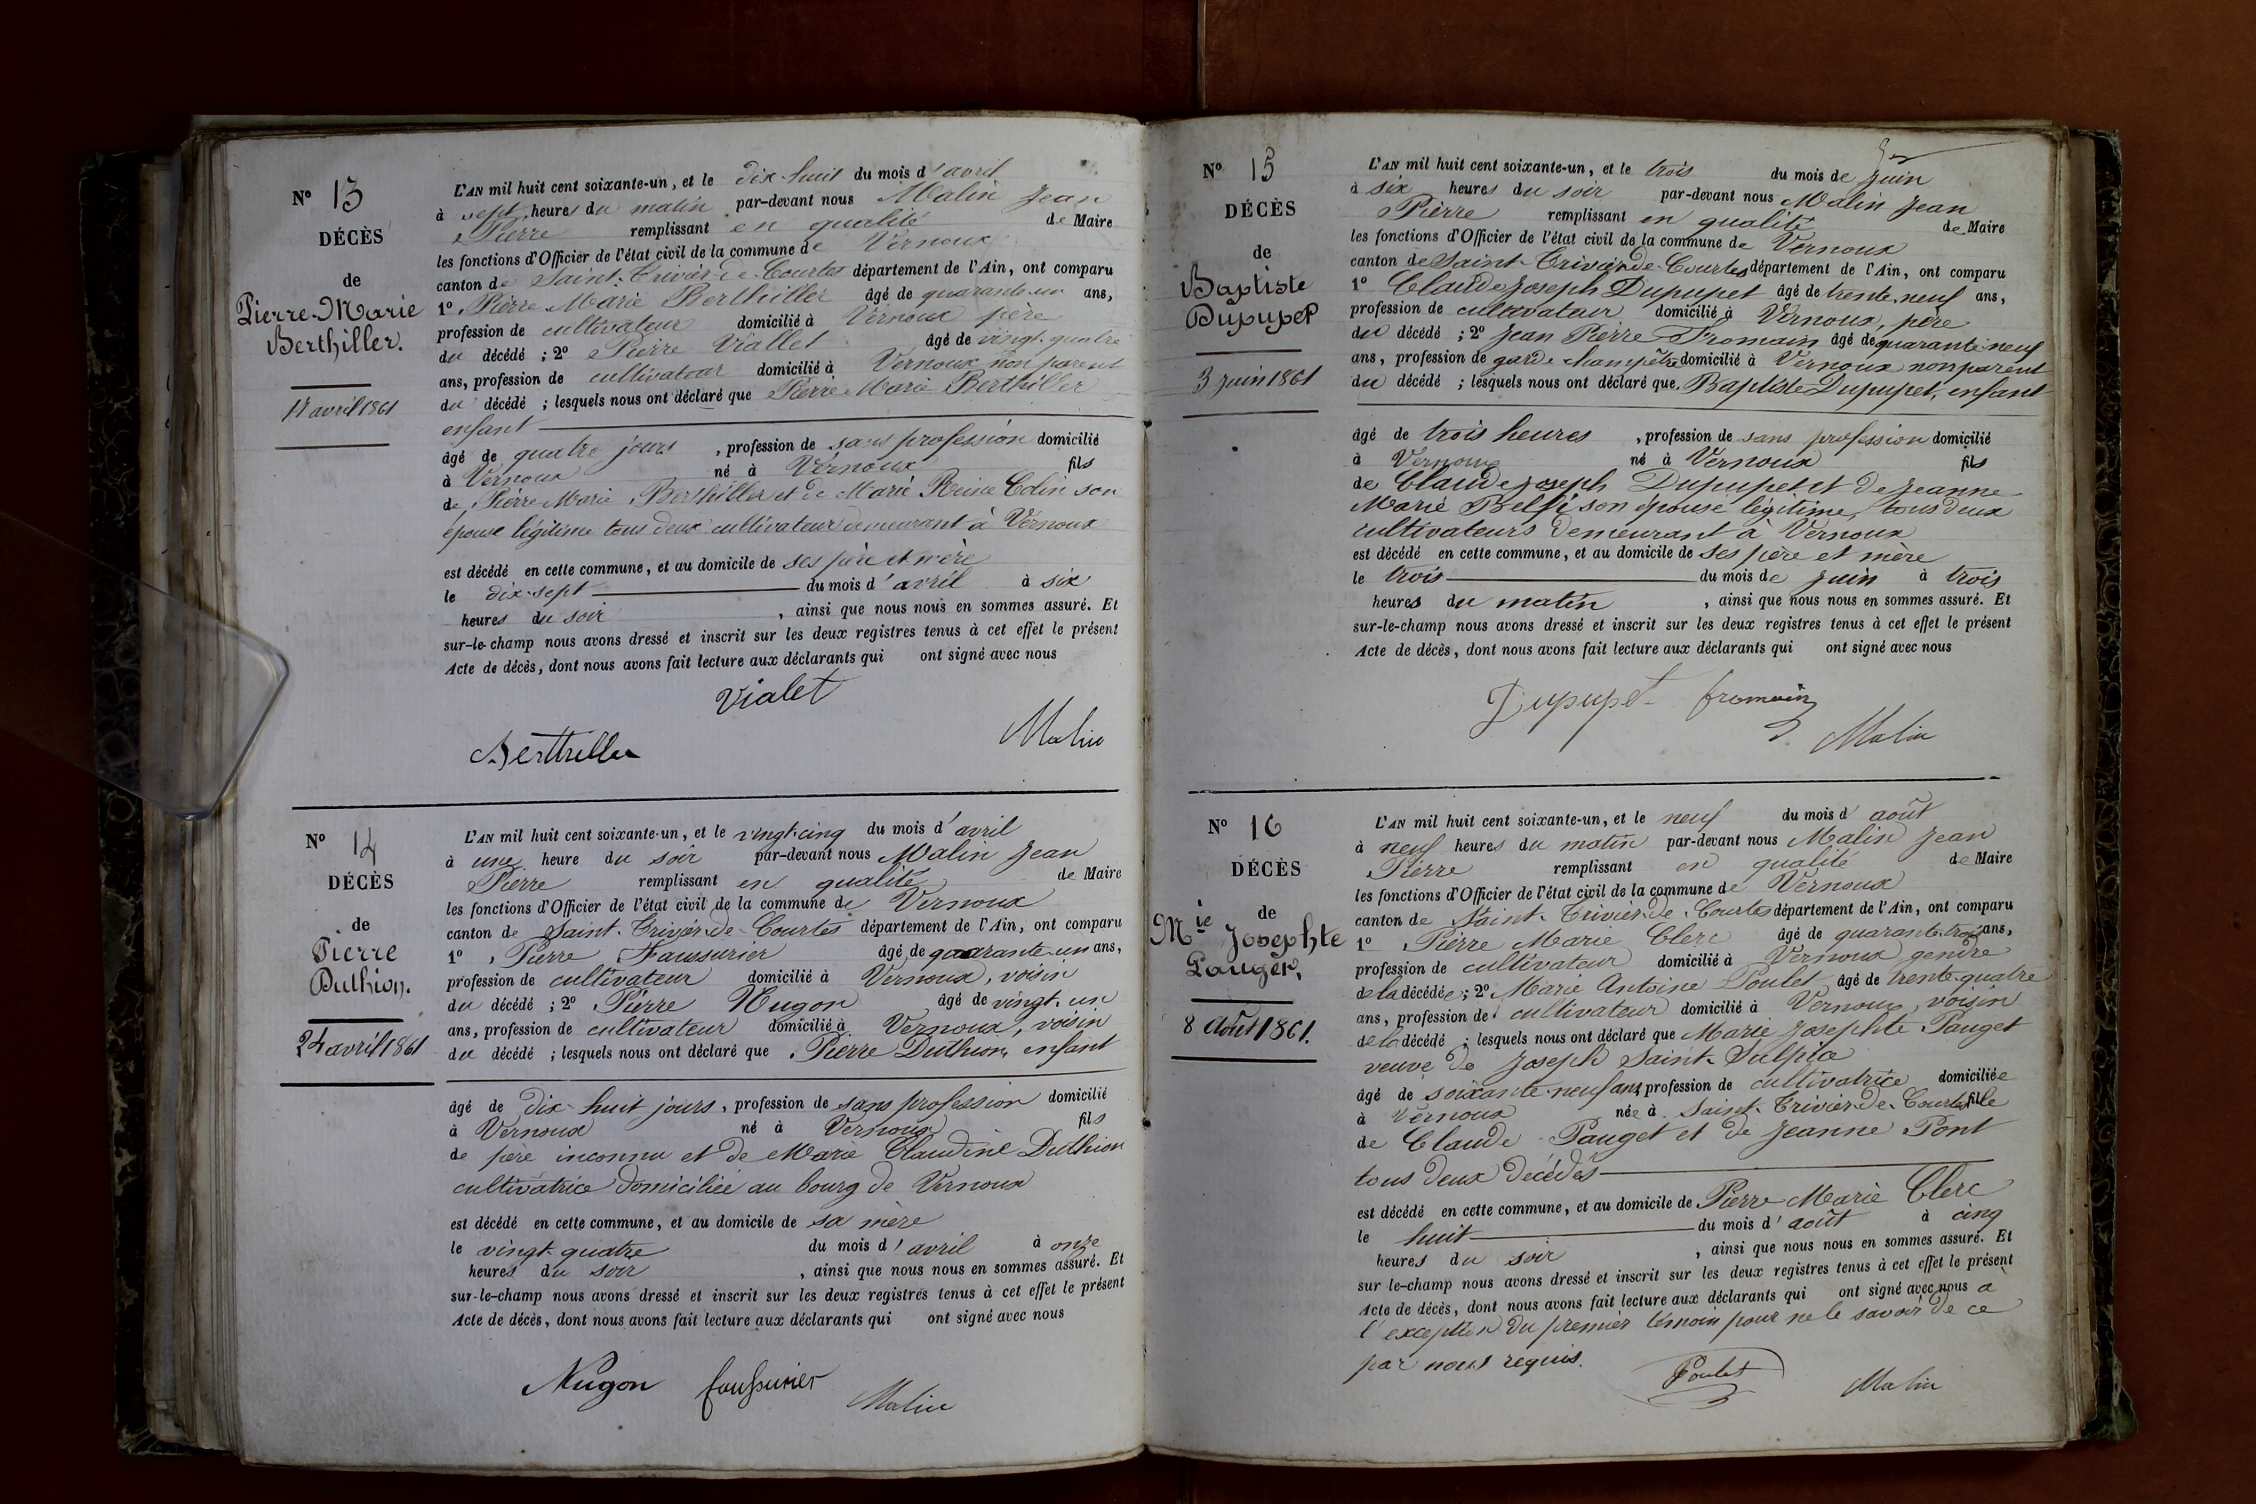 N° 13
DÉCÈS
de
Pierre-Marie
Berthiller.
17 avril 1861
L'AN mil huit cent soixante-un, et le dix-huit du mois d'avril
à sept heures du matin par-devant nous Malin Jean
Pierre remplissant en qualité de Maire
les fonctions d'Officier de l'état civil de la commune de Vernoux
canton de Saint-Trivier-de-Courtes département de l'Ain, ont comparu
1° Pierre Marie Berthiller âgé de quarante-un ans,
profession de cultivateur domicilié à Vernoux père
du décédé ; 2° Pierre Viallet âgé de vingt-quatre
ans, profession de cultivateur domicilié à Vernoux non parent
du décédé ; lesquels nous ont déclaré que Pierre Marie Berthiller
enfant
âgé de quatre jours, profession de sans profession domicilié
à Vernoux né à Vernoux fils
de Pierre Marie Berthiller et de Marie Reine Colin son
épouse légitime tous deux cultivateurs demeurant à Vernoux
est décédé en cette commune, et au domicile de ses père et mère
le dix-sept du mois d'avril à six
heures du soir, ainsi que nous nous en sommes assuré. Et
sur-le-champ nous avons dressé et inscrit sur les deux registres tenus à cet effet le présent
Acte de décès, dont nous avons fait lecture aux déclarants qui ont signé avec nous
Vialet
Berthiller Malin
N° 14
DÉCÈS
de
Pierre
Duthion.
24 avril 1861
L'AN mil huit cent soixante-un, et le vingt-cinq du mois d'avril
à une heure du soir par-devant nous Malin Jean
Pierre remplissant en qualité de Maire
les fonctions d'Officier de l'état civil de la commune de Vernoux
canton de Saint-Trivier-de-Courtes département de l'Ain, ont comparu
1° Pierre Faussurier âgé de quarante-un ans,
profession de cultivateur domicilié à Vernoux, voisin
du décédé ; 2° Pierre Nugon âgé de vingt-un
ans, profession de cultivateur domicilié à Vernoux, voisin
du décédé ; lesquels nous ont déclaré que Pierre Duthion, enfant
âgé de dix-huit jours, profession de sans profession domicilié
à Vernoux né à Vernoux fils
de père inconnu et de Marie Claudine Duthion
cultivatrice domiciliée au bourg de Vernoux
est décédé en cette commune, et au domicile de sa mère
le vingt-quatre du mois d'avril à onze
heures du soir, ainsi que nous nous en sommes assuré. Et
sur-le-champ nous avons dressé et inscrit sur les deux registres tenus à cet effet le présent
Acte de décès, dont nous avons fait lecture aux déclarants qui ont signé avec nous
Nugon faussurier Malin
N° 15
DÉCÈS
de
Baptiste
Dupupet
3 juin 1861
L'AN mil huit cent soixante-un, et le trois du mois de juin
à six heures du soir par-devant nous Malin Jean
Pierre remplissant en qualité de Maire
les fonctions d'Officier de l'état civil de la commune de Vernoux
canton de Saint-Trivier-de-Courtes département de l'Ain, ont comparu
1° Claude Joseph Dupupet âgé de trente-neuf ans,
profession de cultivateur domicilié à Vernoux, père
du décédé ; 2° Jean Pierre Fromain âgé de quarante-neuf
ans, profession de garde champêtre domicilié à Vernoux non parent
du décédé ; lesquels nous ont déclaré que Baptiste Dupupet, enfant
âgé de trois heures, profession de sans profession domicilié
à Vernoux né à Vernoux fils
de Claude Joseph Dupupet et de Jeanne
Marie son épouse légitime, tous deux
cultivateurs demeurant à Vernoux
est décédé en cette commune, et au domicile de ses père et mère
le trois du mois de juin à trois
heures du matin, ainsi que nous nous en sommes assuré. Et
sur-le-champ nous avons dressé et inscrit sur les deux registres tenus à cet effet le présent
Acte de décès, dont nous avons fait lecture aux déclarants qui ont signé avec nous
Dupupet fromain
Malin
N° 16
DÉCÈS
de
Mie Josephte
Pauget.
8 Août 1861.
L'AN mil huit cent soixante-un, et le neuf du mois d'août
à neuf heures du matin par-devant nous Malin Jean
Pierre remplissant en qualité de Maire
les fonctions d'Officier de l'état civil de la commune de Vernoux
canton de Saint-Trivier-de-Courtes département de l'Ain, ont comparu
1° Pierre Marie Clerc âgé de quarante-trois ans,
profession de cultivateur domicilié à Vernoux gendre
de la décédée ; 2° Marie Antoine Poulet âgé de trente-quatre
ans, profession de cultivateur domicilié à Vernoux, voisin
de la décédé ; lesquels nous ont déclaré que Marie Josephte Pauget
veuve de Joseph Saint-Sulpice
âgé de soixante-neuf ans, profession de cultivatrice domiciliée
à Vernoux née à Saint-Trivier-de-Courtes fille
de Claude Pauget et de Jeanne Pont
tous deux décédés
est décédé en cette commune, et au domicile de Pierre Marie Clerc
le huit du mois d'août à cinq
heures du soir, ainsi que nous nous en sommes assuré. Et
sur le-champ nous avons dressé et inscrit sur les deux registres tenus à cet effet le présent
Acte de décès, dont nous avons fait lecture aux déclarants qui ont signé avec nous à
l'exception du premier témoin pour ne le savoir de ce
par nous requis.
Poulet Malin